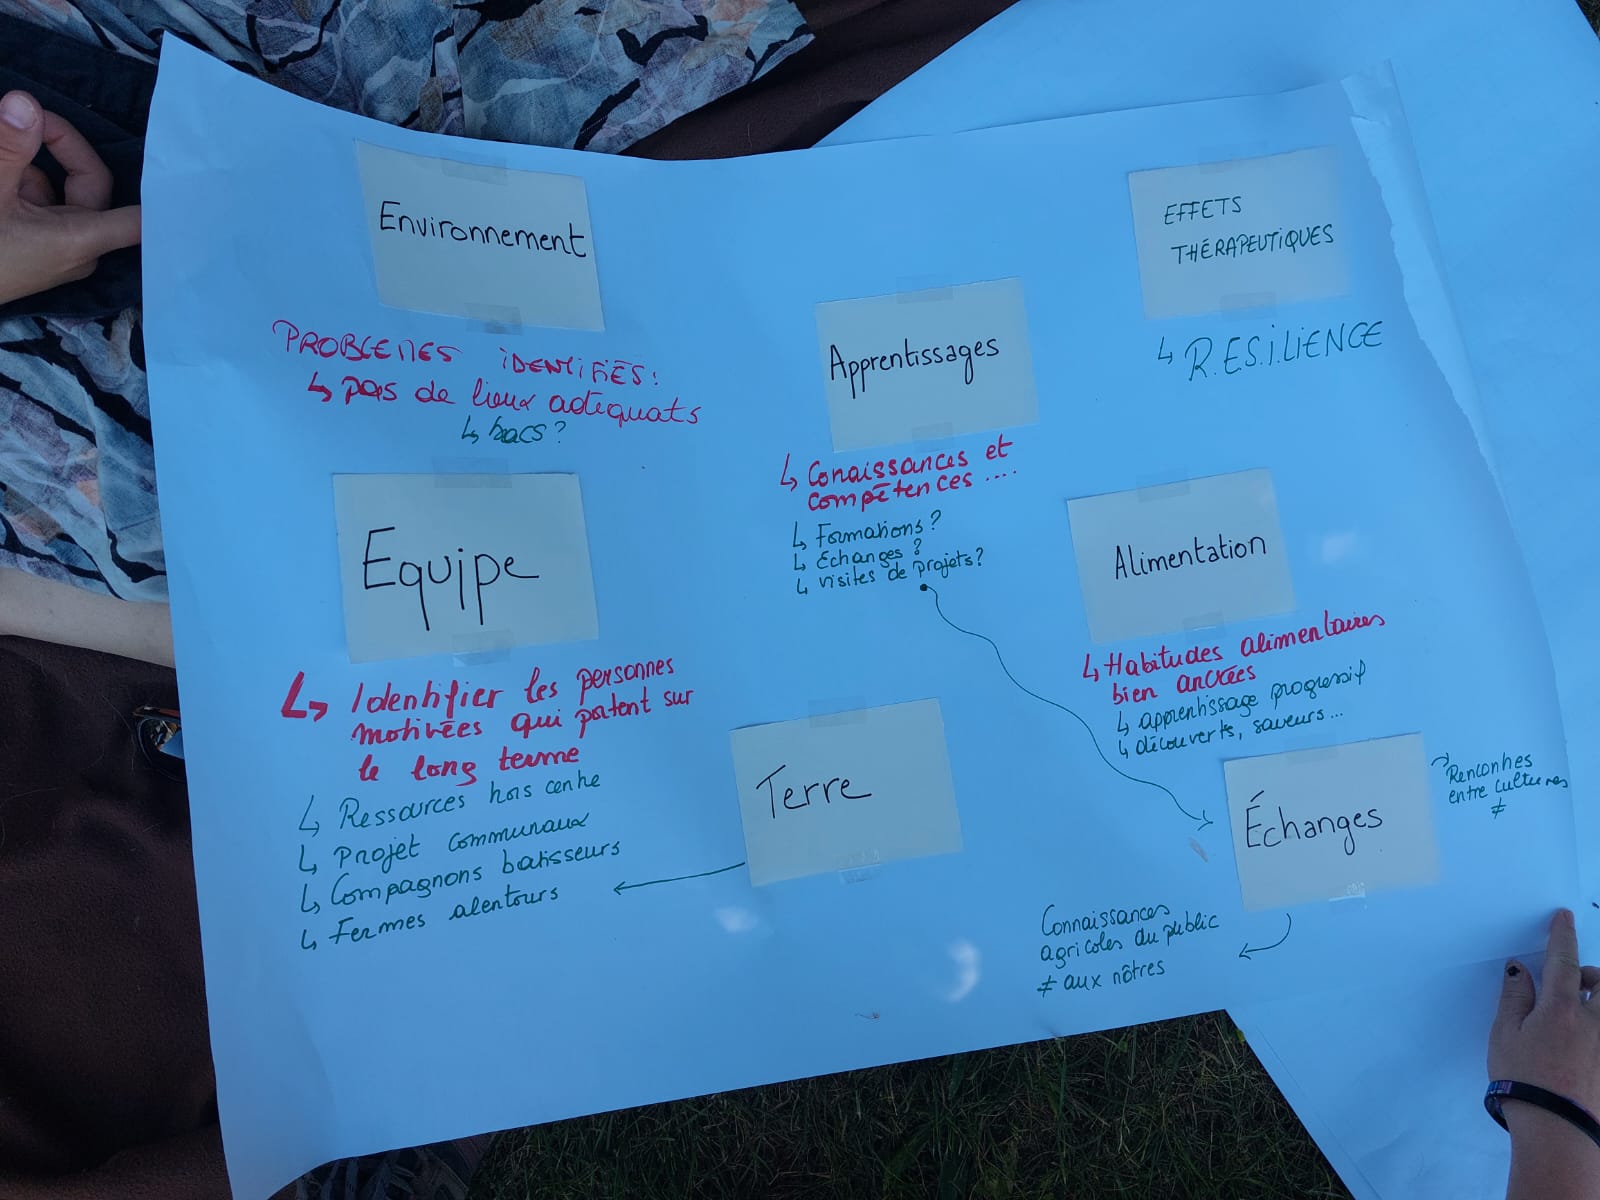 Environnement
PROBLEMES IDENTIFIÉS:
↳ pas de lieux adéquats
↳ bacs?
Equipe
↳ Identifier les personnes
motivées qui portent sur
le long terme
↳ Ressources hors centre
↳ Projet communaux
↳ Compagnons batisseurs
↳ Fermes alentours
Apprentissages
↳ Conaissances et
compétences ....
↳ Formations?
↳ Échanges?
↳ visites de projets?
Terre
EFFETS
THÉRAPEUTIQUES
↳ R.E.S.I.LIENCE
Alimentation
↳ Habitudes alimentaires
bien ancrées
↳ apprentissage progressif
↳ découverts, saveurs...
Échanges
Rencontres
entre cultures
≠
Connaissances
agricoles du public
≠ aux nôtres